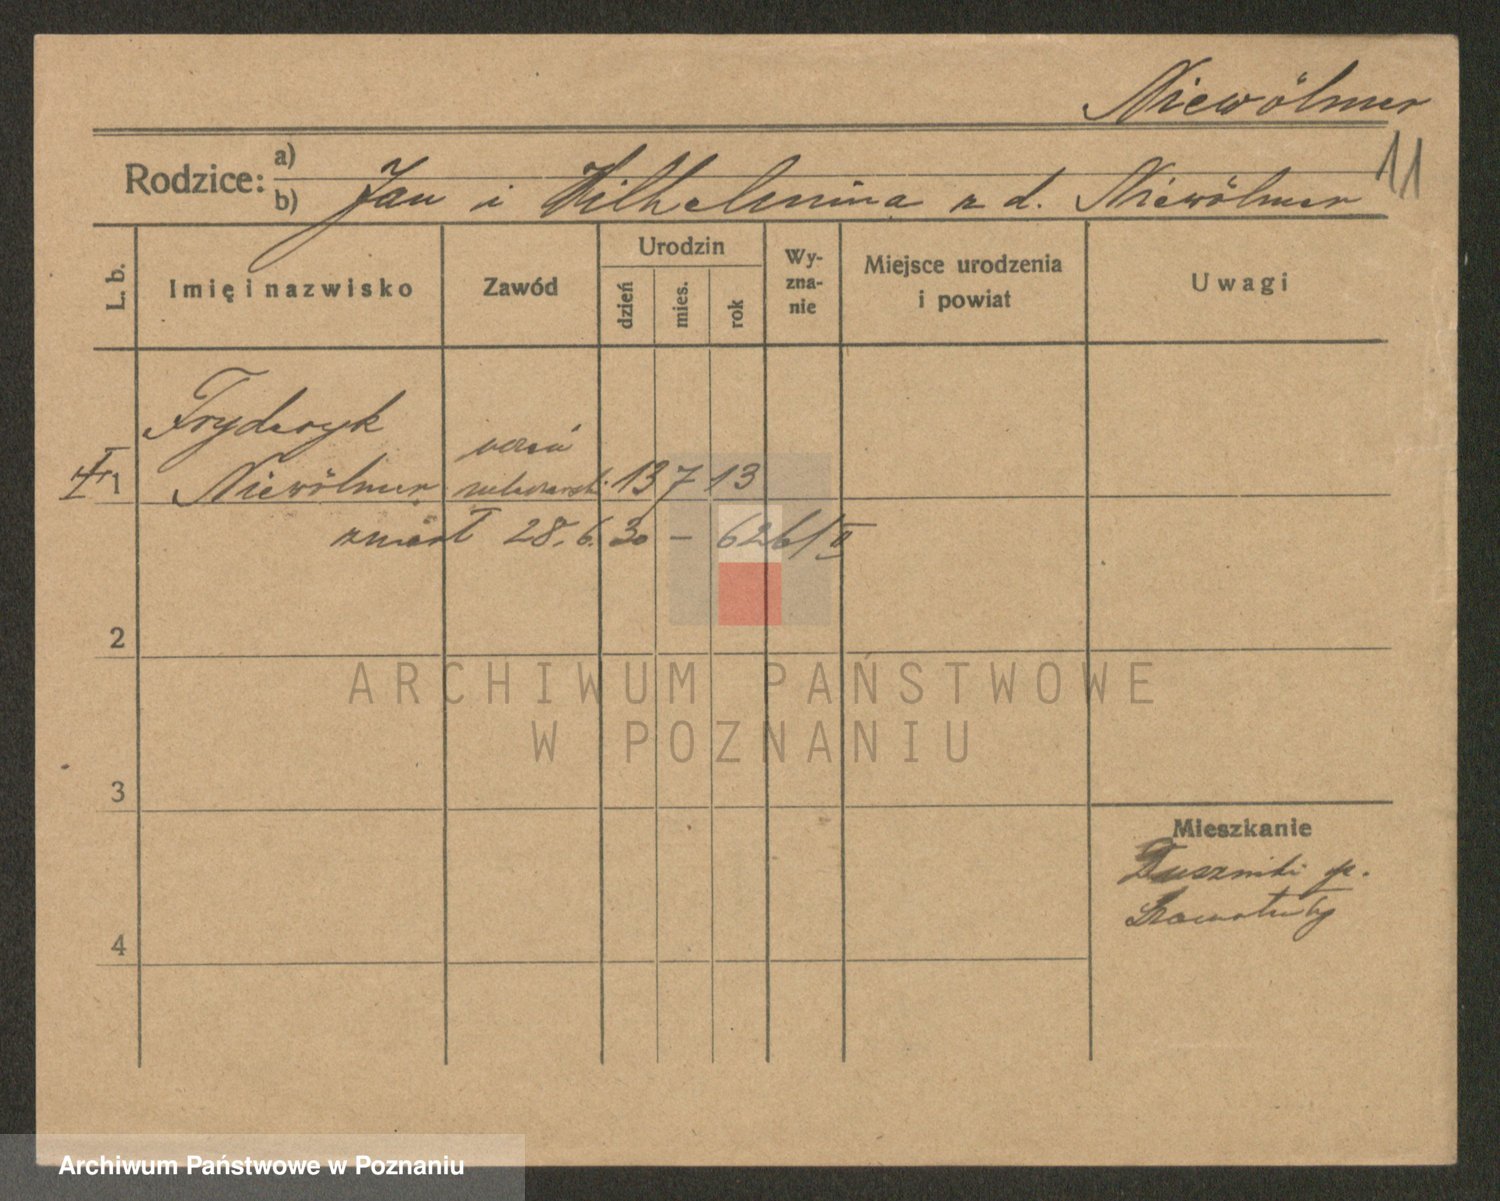 Niewölmer
11
Rodzice: a)
b) Jan i Wilhelmina z d. Niewölmer
L. b.
Imię i nazwisko
Zawód
Urodzin
dzień
mies.
rok
Wy-
zna-
nie
Miejsce urodzenia
i powiat
Uwagi
Fryderyk
uczeń
1 Niewölmer 13 7 13
zmarł 28.6.30 – 626/II
2
3
4
Mieszkanie
Duszniki p.
ARCHIWUM PAŃSTWOWE
W POZNANIU
Archiwum Państwowe w Poznaniu